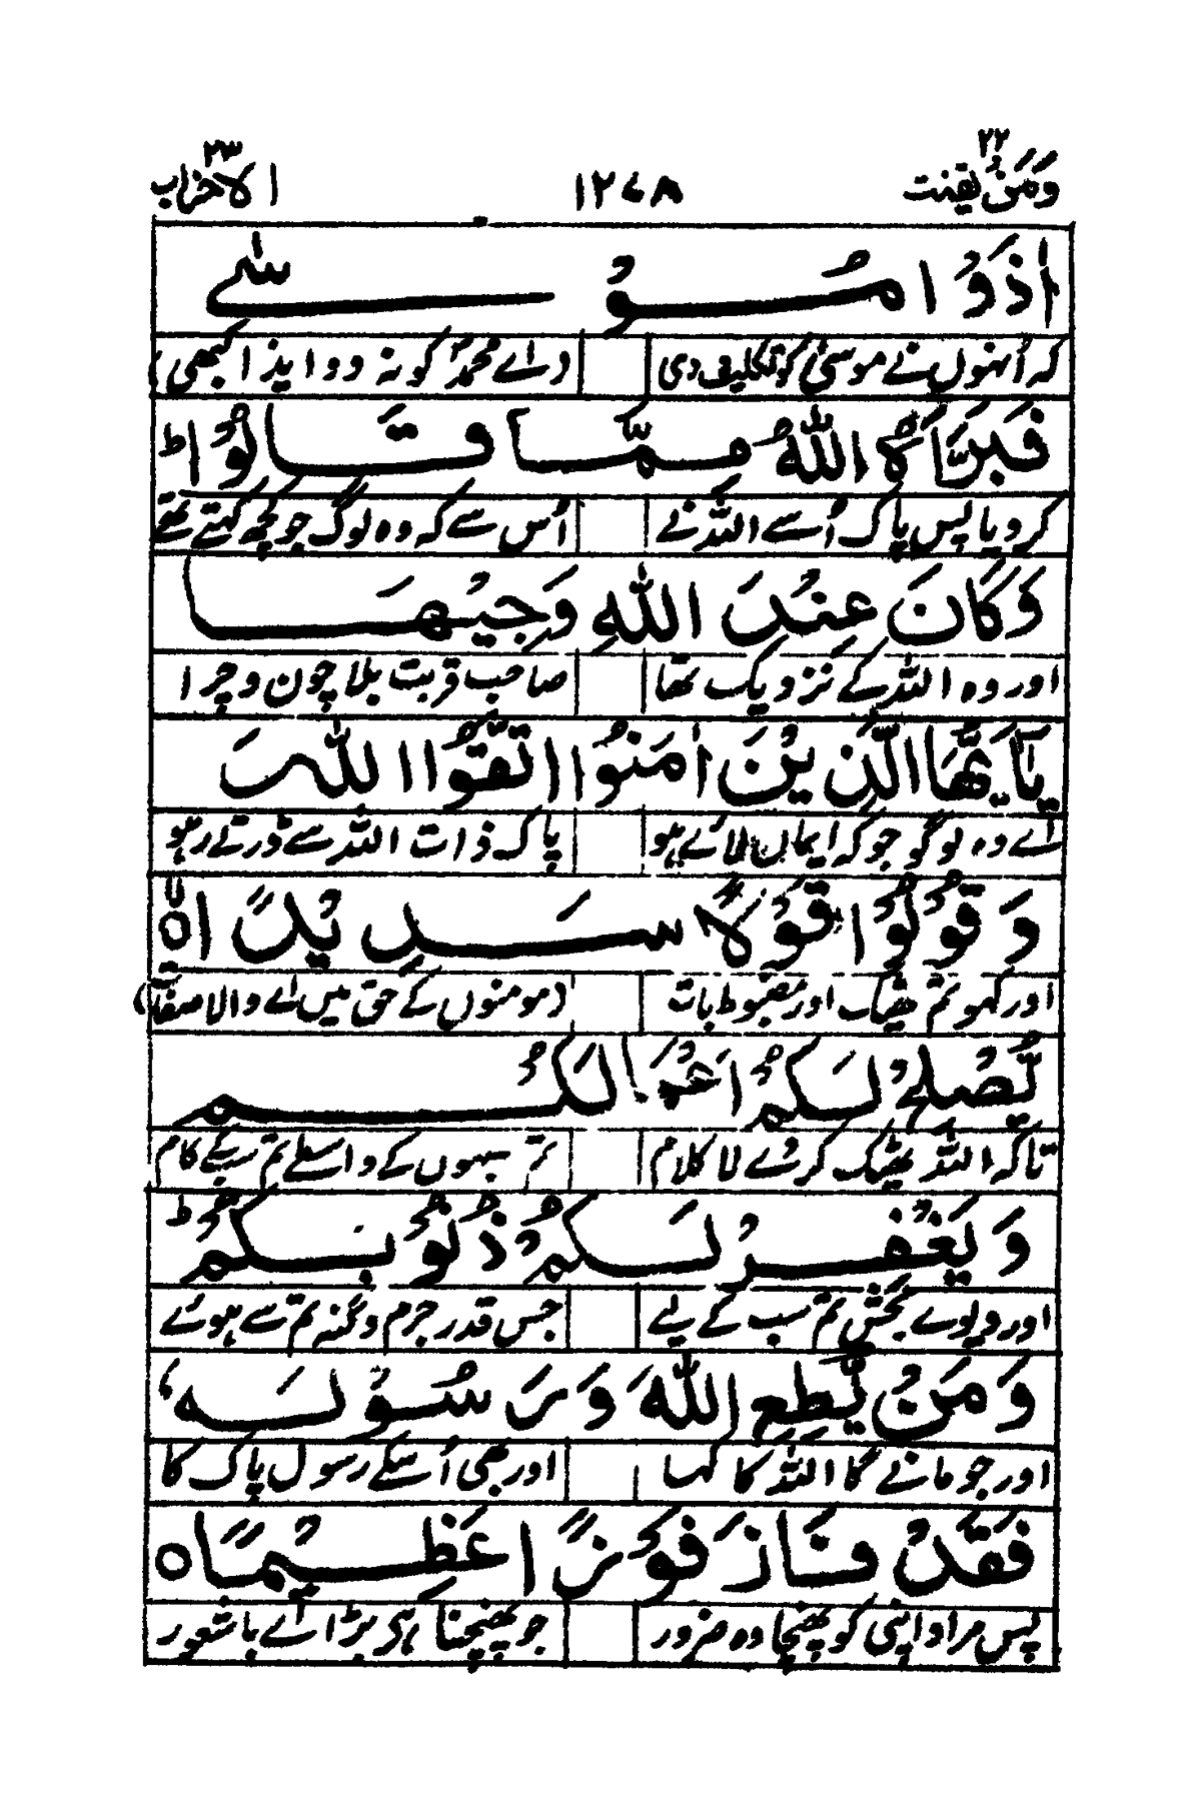 وَمَنْ یقنت ۲۲ ۱۲۷۸ الاحزاب ۳۳
اٰذَوْا مُوْسٰے
کہ اُنہوں نے موسیٰ کو تکلیف دی (اے محمدؐ کو نہ دو ایذا کبھی)
فَبَرَّاَهُ اللّٰهُ مِمَّا قَالُوْا ؕ
کر دیا پس پاک اُسے اللہ نے اُس سے کہ وہ لوگ جو کچھ کہتے تھے
وَكَانَ عِنْدَ اللّٰهِ وَجِيْهَا
اور وہ اللہ کے نزدیک تھا صاحب قربت بلا چون و چرا
يٰۤاَيُّهَا الَّذِيْنَ اٰمَنُوا اتَّقُوا اللّٰهَ
اے وہ لوگو جو کہ ایمان لائے ہو پاک ذات اللہ سے ڈرتے رہو
وَقُوْلُوْا قَوْلًا سَدِيْدًا ۙ
اور کہو تم ٹھیک اور مضبوط بات (مومنوں کے حق میں اے والا صفات)
يُّصْلِحْ لَكُمْ اَعْمَالَكُمْ
تاکہ اللہ ٹھیک کر دے لا کلام تم سبہوں کے واسطے تم سب کے کام
وَيَغْفِرْ لَكُمْ ذُنُوْبَكُمْ ؕ
اور دیوے بخش تم سب کے لیے جس قدر جرم و گنہ تم سے ہوئے
وَمَنْ يُّطِعِ اللّٰهَ وَرَسُوْلَهٗ
اور جو مانے گا اللہ کا کہا اور بھی اُسکے رسول پاک کا
فَقَدْ فَازَ فَوْزًا عَظِيْمًا ○
پس مراد اپنی کو پہنچا وہ ضرور جو پہنچنا ہے بڑا اے با شعور